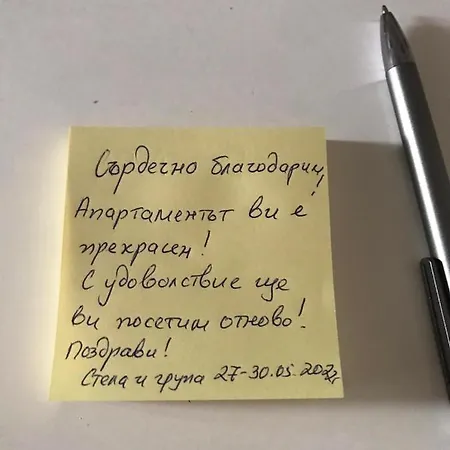 Сърдечно благодарим!
Апартаментът ви е
прекрасен!
С удоволствие ще
ви посетим отново!
Поздрави!
Стела и група 27-30.05.2022г